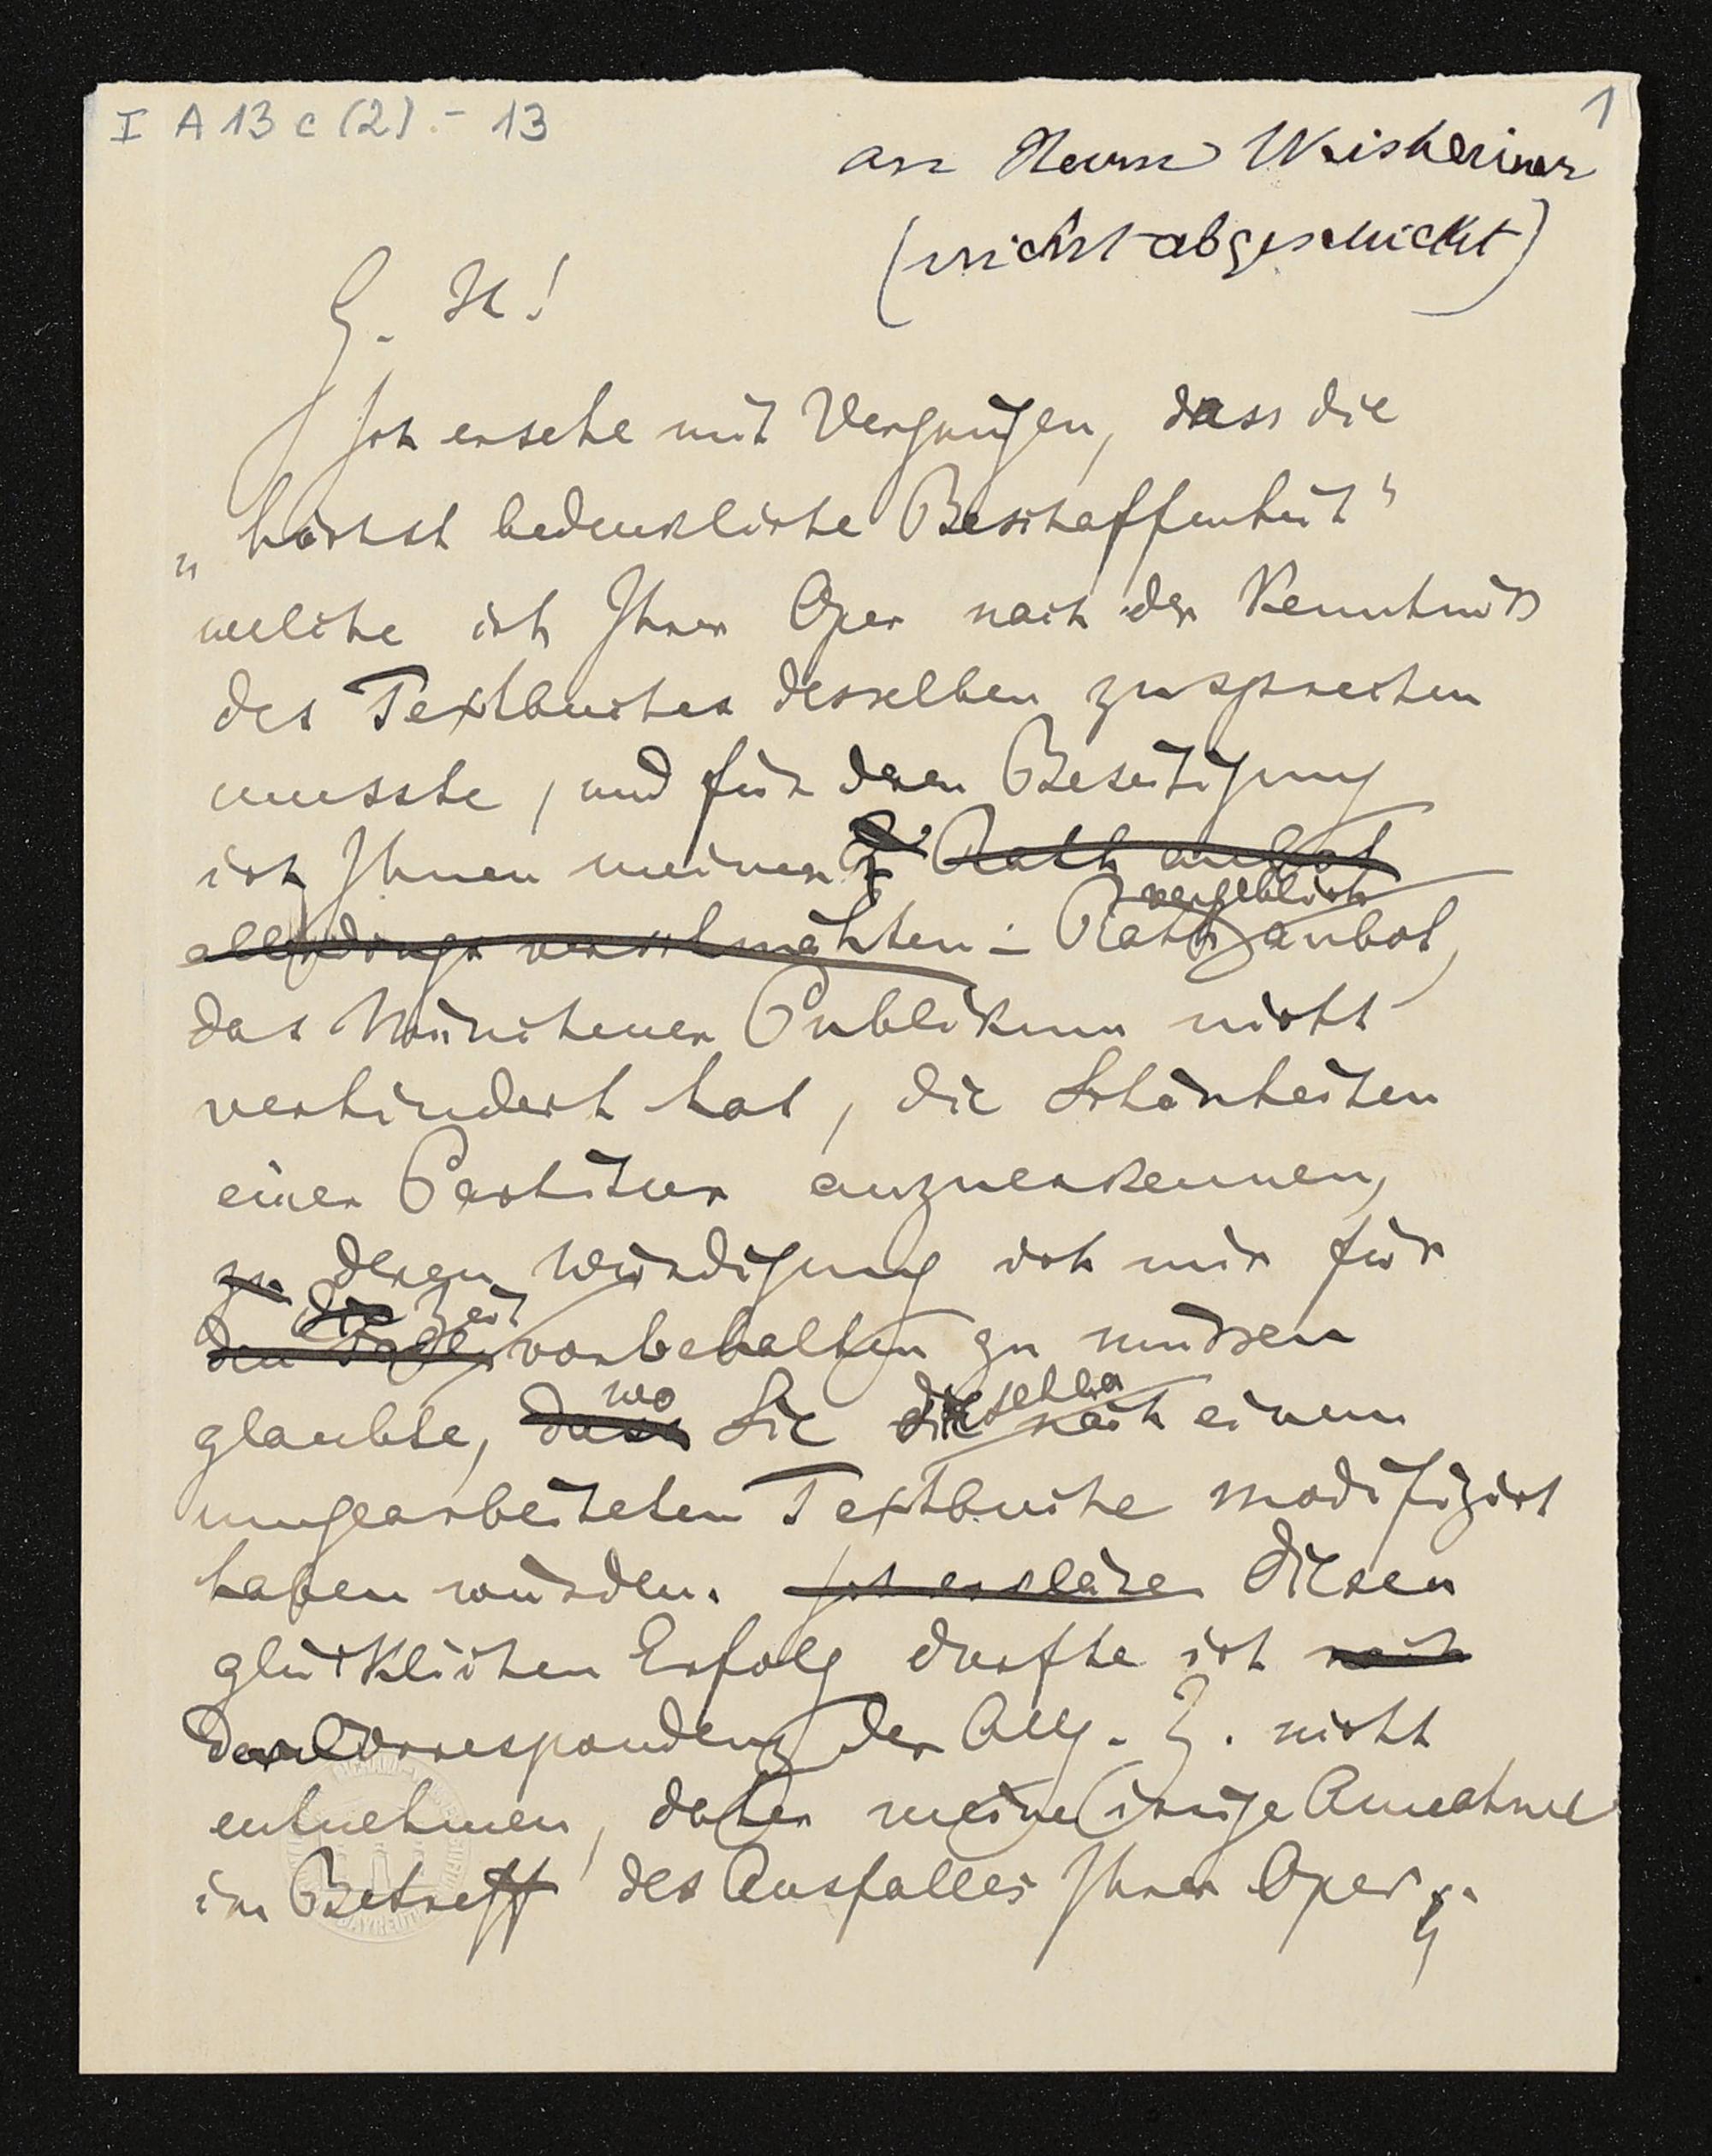 I A 13 c (2) - 13
1
an Herrn Weisheimer
(nicht abgeschickt)
G. H!
Ich ersehe mit Vergnügen, dass die
„höchst bedenkliche Beschaffenheit“
welche ich Ihrer Oper nach der Kenntniss
des Textbuches desselben zusprechen
musste, und für deren Beseitigung
ich Ihnen meinen Rath anbot
vergeblich
allerdings verschmähten – Rath anbot,
das Münchener Publikum nicht
verhindert hat, die Schönheiten
einer Partitur anzuerkennen,
zu deren Würdigung ich mir für
die Zeit
den vorbehalten zu müssen
wo dieselbe
glaubte, dass Sie nach einem
umgearbeiteten Textbuche modifizirt
haben würden. Ich erkläre Diesen
glücklichen Erfolg durfte ich nach
der Correspondenz der Allg. Z. nicht
entnehmen, daher meine irrige Annahme
im Betreff des Ausfalles Ihrer Oper